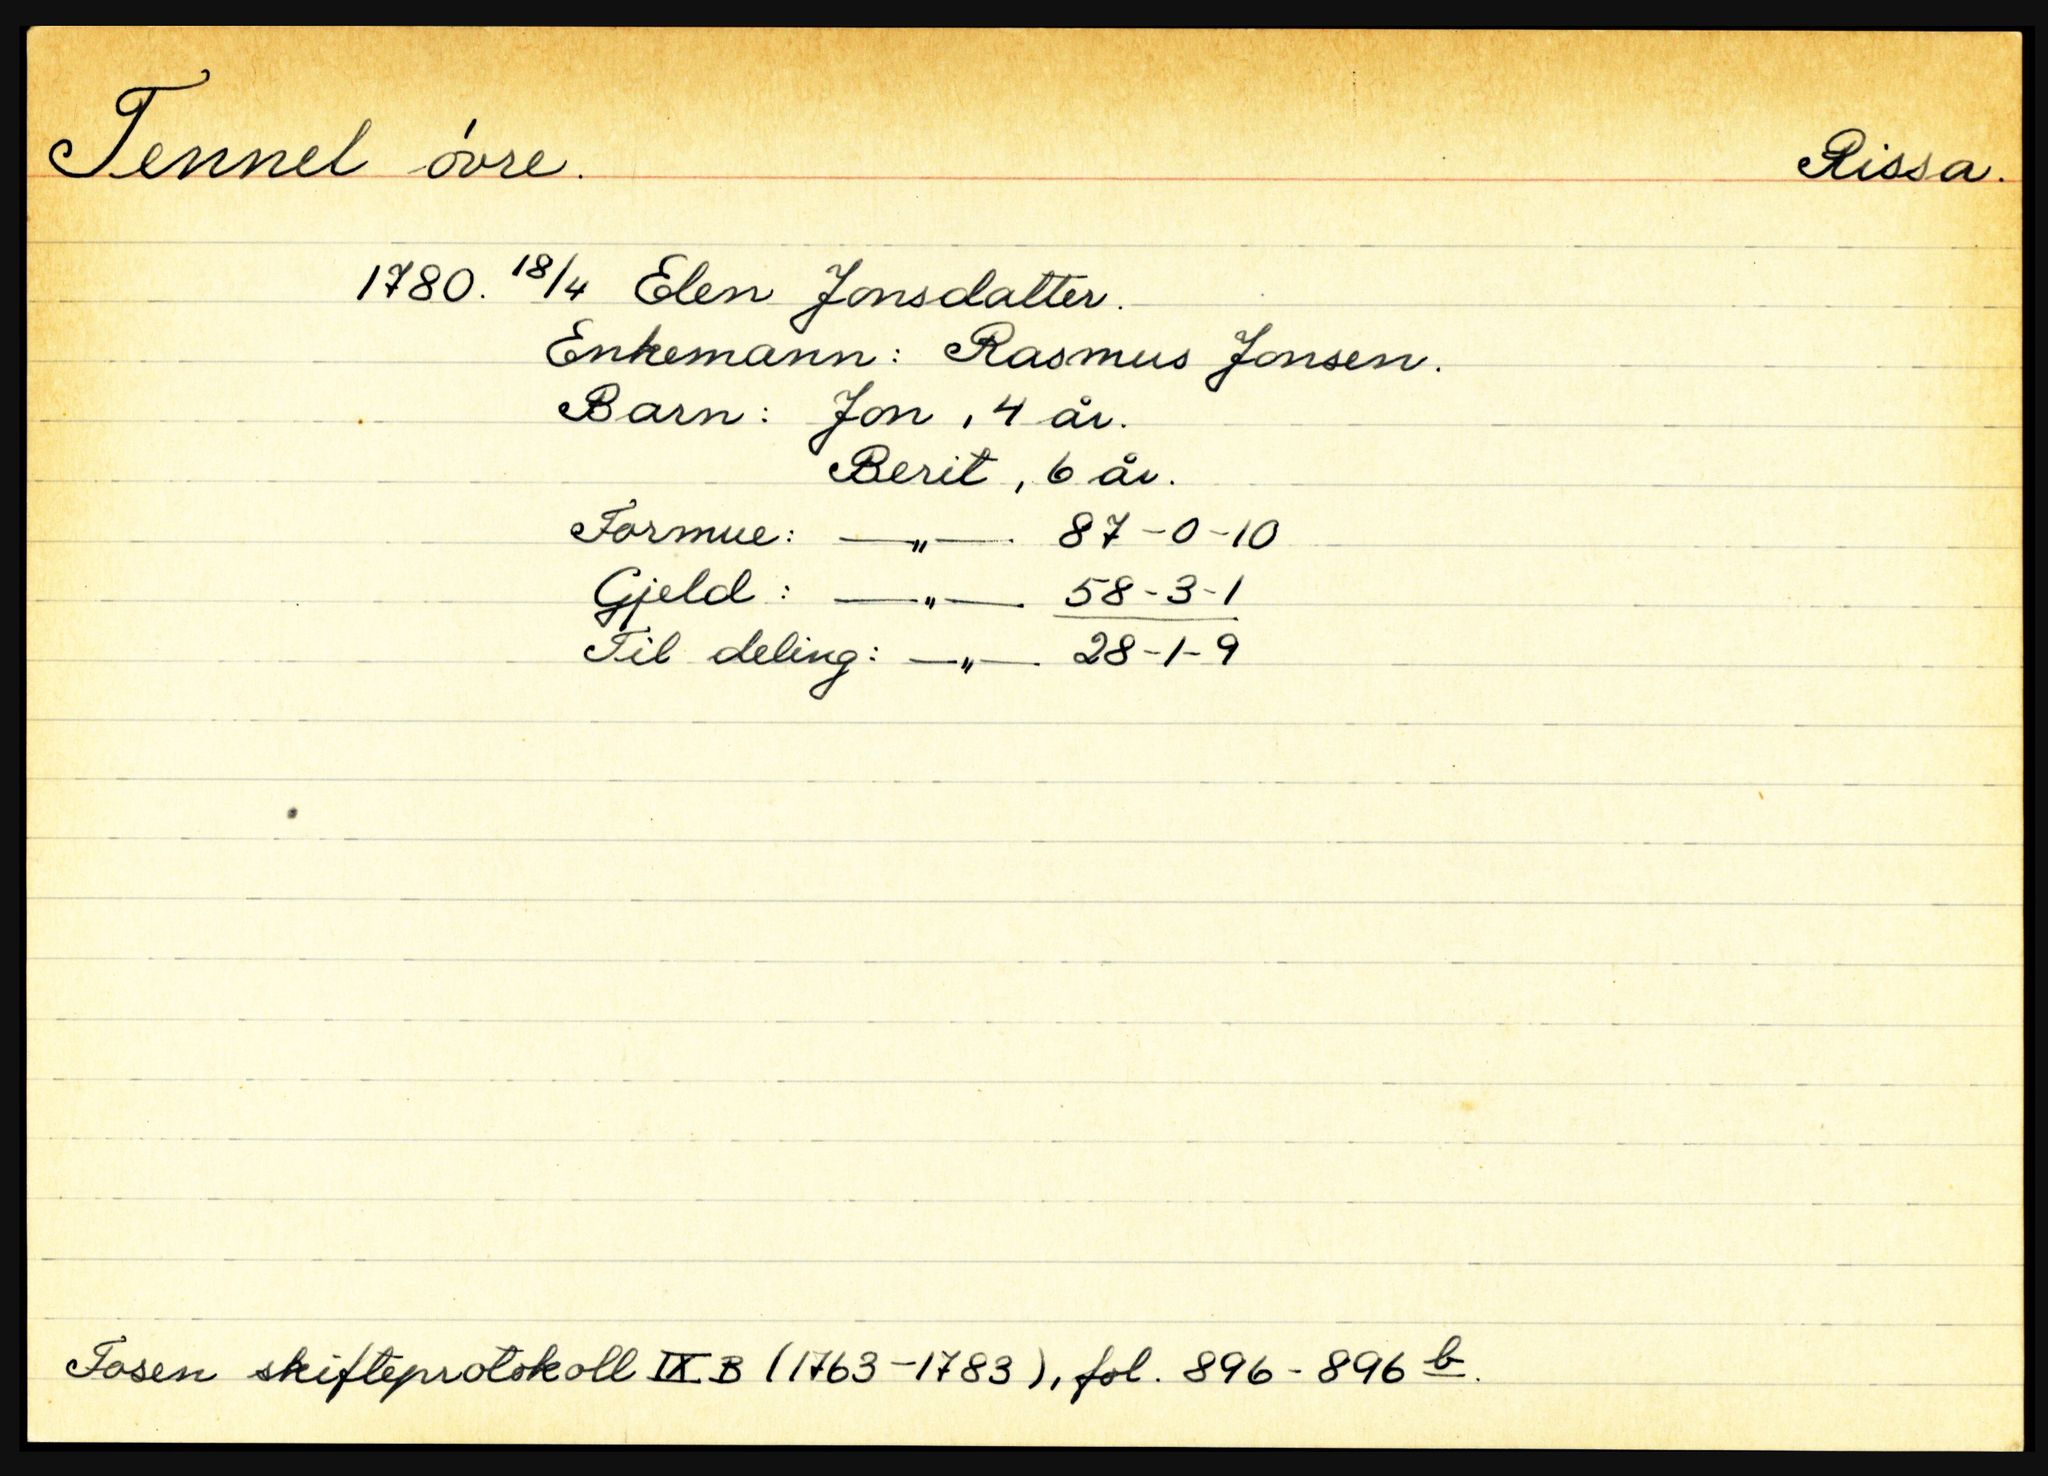 Tennel övre. Rissa.
1780. 18/4 Elen Jonsdatter.
Enkemann: Rasmus Jonsen.
Barn: Jon, 4 år.
Berit, 6 år.
Formue: —„— 87-0-10
Gjeld: —„— 58-3-1
Til deling: —„— 28-1-9
Fosen skifteprotokoll IX B (1763-1783), fol. 896-896 b.